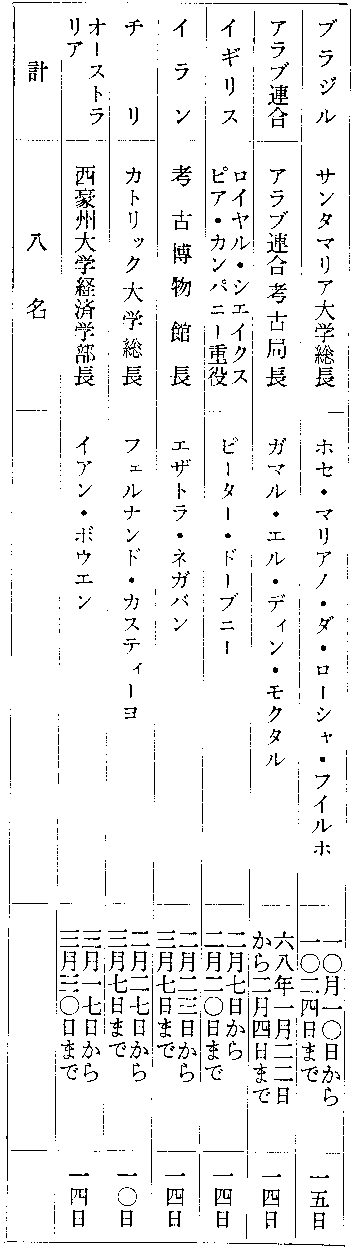 ブラジル サンタマリア大学総長 ホセ・マリアノ・ダ・ローシャ・フイルホ 一〇月一〇日から
一〇二四日まで 一五日
アラブ連合 アラブ連合考古局長 ガマル・エル・ディン・モクタル 六八年一月二二日
から二月四日まで 一四日
イギリス ロイヤル・シエイクス
ピア・カンパニー重役 ピーター・ドーブニー 二月七日から
二月二〇日まで 一四日
イラン 考古博物館長 エザトラ・ネガバン 二月二三日から
三月七日まで 一四日
チリ カトリック大学総長 フェルナンド・カスティーヨ 二月二七日から
三月七日まで 一〇日
オーストラ
リア 西豪州大学経済学部長 イアン・ボウエン 三月一七日から
三月三〇日まで 一四日
計 八名